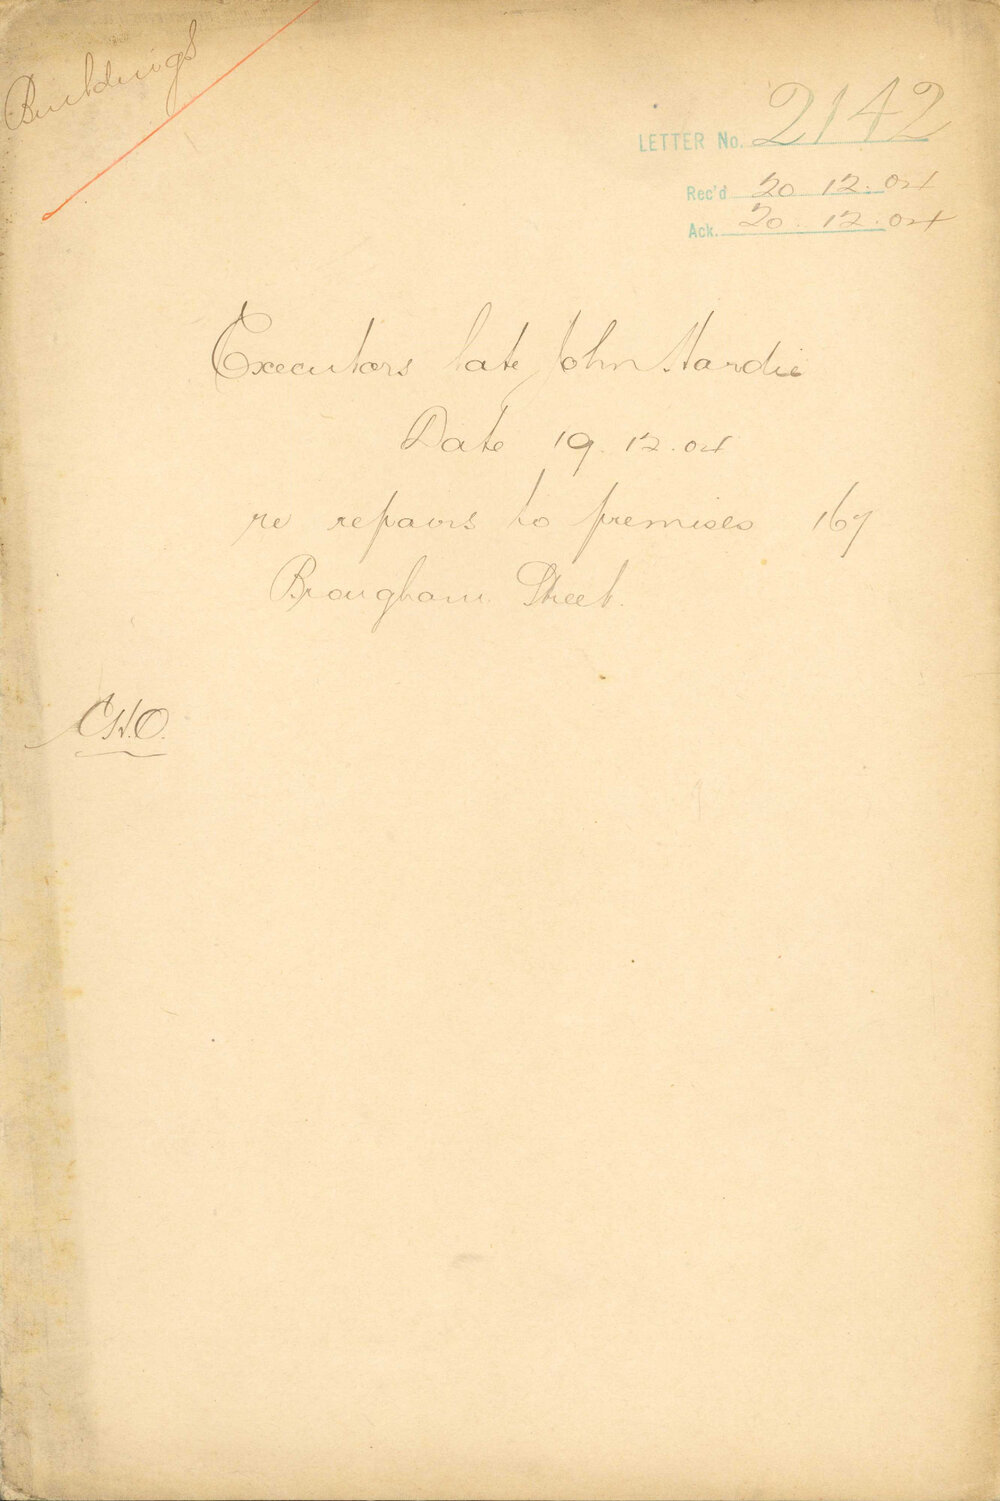 Buildings
LETTER No. 2142
Rec'd 20.12.04
Ack. 20.12.04
Executors late John Hardie
Date 19.12.04
re repairs to premises 167
Brougham Street.
C.H.O.